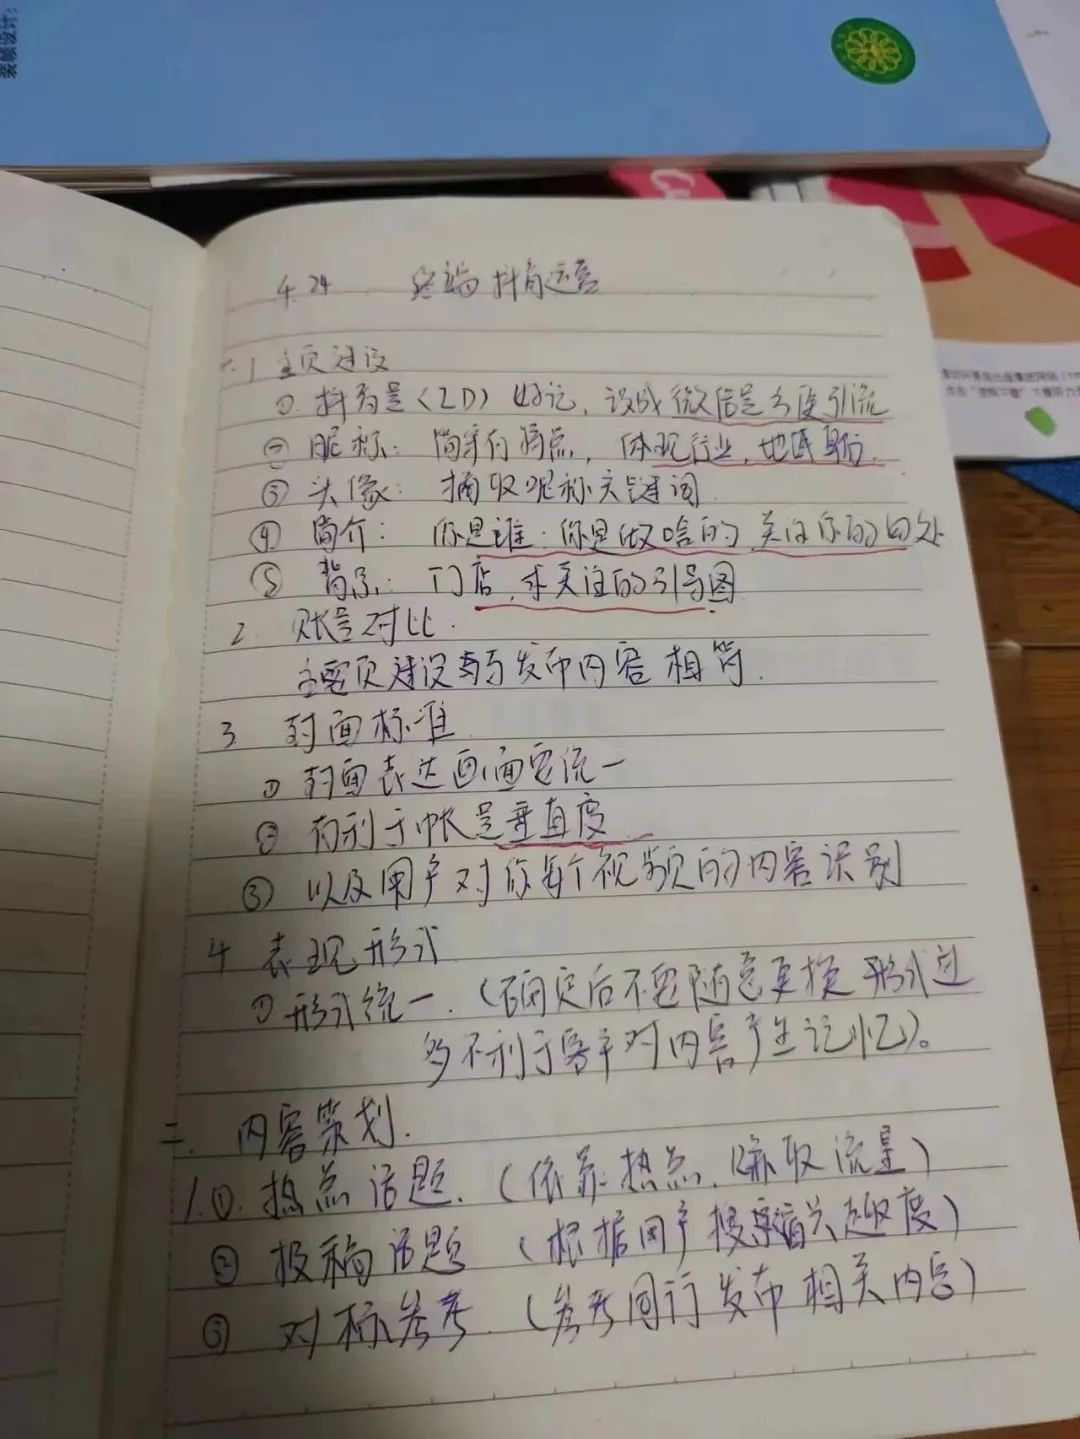 装帧设计:
4.24 终端抖音运营
一.1 主页建设
①. 抖音号(ID) 好记,设成微信号方便引流
② 昵称: 简单有特点,体现行业,地域
③ 头像: 摘取昵称关键词
④ 简介: 你是谁.你是做啥的.关注你的好处
⑤ 背景: 门店,求关注的引导图
2 账号对比:
主页建设与发布内容相符.
3 封面标准
① 封面表达画面要统一
② 有利于帐号垂直度
③ 以及用户对你每个视频的内容识别
4 表现形式
① 形式统一.(确定后不要随意更换 形式过
多不利于客户对内容产生记忆)。
二. 内容策划.
1.①. 热点话题.(依靠热点,赚取流量)
② 投稿话题(根据用户搜索兴趣度)
③ 对标参考.(参考同行发布相关内容)